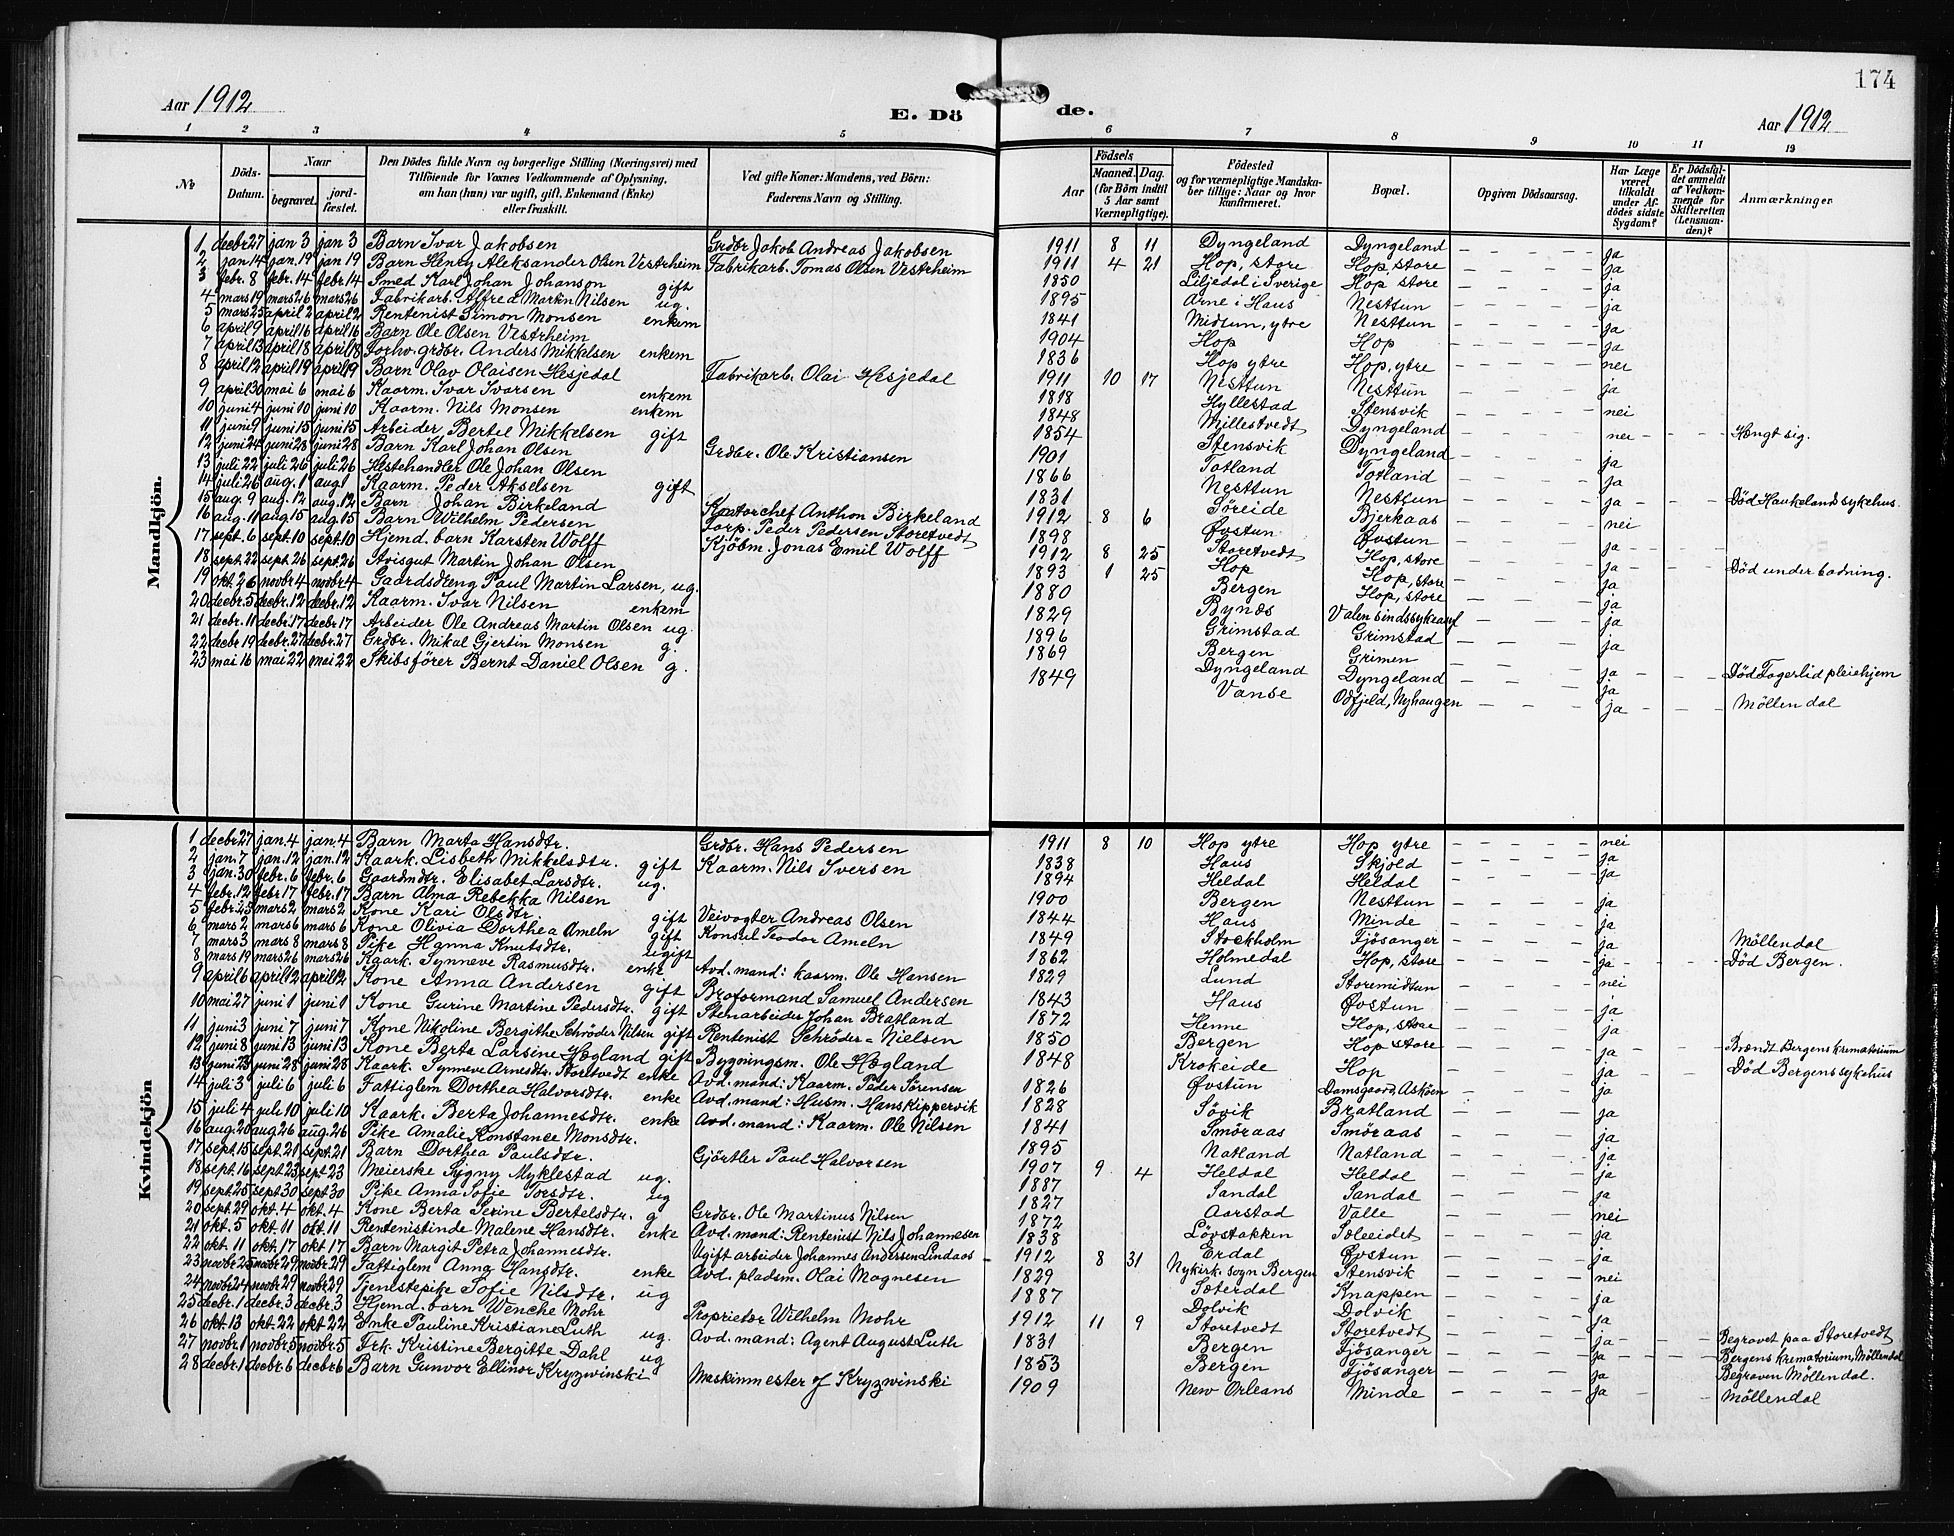 174
Aar 1912
E. Dö de.
Aar 1912
1 2 3 4 5 6 7 8 9 10 11 12
№
Döds-Datum.
Naar
begravet.
jord-fæstet.
Den Dödes fulde Navn og borgerlige Stilling (Næringsvei) med
Tilföiende for Voxnes Vedkommende af Oplysning,
om han (hun) var ugift, gift, Enkemand (Enke)
eller fraskilt.
Ved gifte Koner: Mandens, ved Börn:
Faderens Navn og Stilling.
Aar
Födsels
Maaned. Dag.
(for Börn indtil
5 Aar samt
Værnepligtige).
Födested
og for værnepligtige Mandska-
ber tillige: Naar og hvor
Konfirmeret.
Bopæl.
Opgiven Dödsaarsag.
Har Læge
været
tilkaldt
under Af-
dödes sidste
Sygdom?
Er Dödsfal-
det anmeldt
af Vedkom-
mende for
Skifteretten
(Lensman-
den)?
Anmærkninger
Mandkjön.
1 decbr 27 jan 3 jan 3 Barn Ivar Jakobsen Grdbr Jakob Andreas Jakobsen 1911 8 11 Dyngeland Dyngeland ja
2 jan 14 jan. 19 jan 19 Barn Henry Aleksander Olsen Vestrheim Fabrikarb. Tomas Olsen Vestrheim 1911 4 21 Hop, store Hop, store ja
3 febr. 8 febr. 14 febr. 14 Smed Karl Johan Johanson gift 1850 Liljedal i Sverige Hop store ja
4 mars 19 mars 26 mars 26 Fabrikarb. Alfred Martin Nilsen ug. 1895 Arne i Haus Nesttun ja
5 mars 25 april 2 april 2 Rentenist Simon Monsen enkem 1841 Midtun, ytre Nesttun ja
6 april 9 april 16 april 16 Barn Ole Olsen Vestrheim 1904 Hop Hop ja
7 april 13 april 18 april 18 Forhv. grdbr. Anders Mikkelsen enkem 1836 Hop ytre Hop, ytre nei
8 april 12 april 19 april 19 Barn Olav Olaisen Hesjedal Fabrikarb. Olai Hesjedal 1911 10 17 Nesttun Nesttun ja
9 april 30 mai 6 mai 6 Kaarm. Ivar Ivarsen enkem 1818 Hyllestad Stensvik nei
10 juni 4 juni 10 juni 10 Kaarm. Nils Monsen enkem 1848 Millestvedt Dyngeland
11 juni 9 juni 15 juni 15 Arbeider Bertil Mikkelsen gift 1854 Stensvik Dyngeland nei Hængt sig.
12 juni 24 juni 28 juni 28 Barn Karl Johan Olsen Grdbr. Ole Kristiansen 1901 Totland Totland ja
13 juli 22 juli 26 juli 26 Hestehandler Ole Johan Olsen 1866 Nesttun Nesttun ja Död Haukeland sykehus.
14 juli 26 aug. 1 aug 1 Kaarm. Peder Akselsen gift 1831 Søreide Bjerkaas nei
15 aug. 9 aug. 12 aug. 12 Barn Johan Birkeland Kontorchef Anthon Birkeland 1912 8 6 Øvstun Øvstun ja
16 aug. 11 aug. 15 aug. 15 Barn Wilhelm Pedersen Forp. Peder Pedersen Storetvedt 1898 Storetvedt Hop, store ja Död under badning.
17 sept. 6 sept. 10 sept. 10 Hjemd. barn Karsten Wolff Kjöbm. Jonas Emil Wolff 1912 8 25 Hop Hop, store ja
18 sept. 22 sept. 26 sept. 26 Avisgut Martin Johan Olsen 1893 1 25 Bergen Hop, store ja
19 okt. 26 novbr 4 novbr 4 Gaardsdreng Paul Martin Larsen, ug. 1880 Bynæs Valen sindssykeasyl ja
20 decbr. 5 decbr. 12 decbr. 12 Kaarm. Ivar Nilsen enkem 1829 Grimstad Grimstad ja
21 decbr. 11 decbr. 17 decbr 17 Arbeider Ole Andreas Martin Olsen ug. 1896 Bergen Grimen ja Död Fagerlid pleiehjem
22 decbr 19 decbr. 27 decbr. 27 Grdbr. Mikal Gjertin Monsen g. 1869 Dyngeland Dyngeland ja
23 mai 16 mai 22 mai 22 Skibsförer Bernt Daniel Olsen g. 1849 Vanse Odfjeld, Nyhaugen ja Möllendal
Kvindekjön
1 decbr 27 jan. 4 jan. 4 Barn Marta Hansdtr. Grdbr. Hans Pedersen 1911 8 10 Hop ytre Hop ytre nei
2 jan. 7 jan. 12 jan. 12 Kaark. Lisbeth Mikkelsdtr. gift Kaarm. Nils Iversen 1838 Haus Skjold ja
3 jan. 30 febr. 6 febr. 6 Gaardmdtr. Elisabet Larsdtr. ug. 1894 Heldal Heldal ja
4 febr. 12 febr 17 febr. 17 Barn Alma Rebekka Nilsen 1900 Bergen Nesttun ja
5 febr. 25 mars 2 mars 2 Kone Kari Olsdtr. gift Veivogter Andreas Olsen 1844 Haus Minde ja
6 mars 2 mars 6 mars 6 Kone Olivia Dorthea Ameln gift Konsul Teodor Ameln 1849 Stockholm Fjösanger ja Möllendal
7 mars 3 mars 8 mars 8 Pike Hanna Knutsdtr. ugift 1862 Holmedal Hop, store ja Död Bergen.
8 mars 19 mars 26 mars 26 Kaark. Synneve Rasmusdtr. enke Avd. mand: kaarm. Ole Hansen 1829 Lund Storemidtun nei
9 april 6 april 12 april 12 Kone Anna Andersen gift Broformand Samuel Andersen 1843 Haus Øvstun ja
10 mai 27 juni 1 juni 1 Kone Gurine Martine Pedersdtr. gift Stenarbeider Johan Bratland 1872 Henne Hop, store ja
11 juni 3 juni 7 juni 7 Kone Nikoline Bergithe Schröder Nilsen gift Rentenist Schröder-Nielsen 1850 Bergen Hop store ja Brændt Bergens krematorium
12 juni 8 juni 13 juni 13 Kone Berta Larsine Hægland gift Bygningsm. Ole Hægland 1848 Krokeide Hop ja Död Bergens sykehus
13 juni 23 juni 28 juni 28 Kaark. Synneve Arnesdtr. Storetvedt enke Avd. mand: Kaarm. Peder Sörensen 1826 Øvstun Damsgaard, Asköen ja
14 juli 3 juli 6 juli 6 Fattiglem Dorthea Halvorsdtr. enke Avd. mand: Husm. Hans Kippervik 1828 Sövik Bratland ja
15 juli 4 juli 10 juli 10 Kaark. Berta Johannesdtr. enke Avd. mand: Kaarm. Ole Nilsen 1841 Smöraas Smöraas ja
16 aug. 20 aug 26 aug. 26 Pike Amalie Konstanse Monsdtr. 1895 Natland Natland ja
17 sept. 15 sept. 21 sept. 21 Barn Dorthea Paulsdtr. Gjörtler Paul Halvorsen 1907 9 4 Heldal Heldal ja
18 sept. 16 sept. 23 sept 23 Meierske Sygny Myklestad ug. 1887 Sandal Sandal ja
19 sept. 25 sept. 30 sept. 30 Pike Anna Sofie Torsdtr. ug 1827 Aarstad Valle nei
20 sept. 29 okt. 4 okt. 4 Kone Berta Serine Bertelsdtr. g Grdbr. Ole Martinus Nilsen 1872 Lövstakken Sæleidet
21 okt. 5 okt. 11 okt. 11 Rentenistinde Malene Hansdtr. enke Avd. mand: Rentenist Nils Johannesen 1838 Erdal Øvstun ja
22 okt. 11 okt. 17 okt 17 Barn Margit Petra Johannesdtr. Ugift arbeider Johannes Andersen Lindaas 1912 8 31 Nykirk. sogn Bergen Stensvik nei
23 novbr 25 novbr 29 novbr. 29 Fattiglem Anna Hansdtr. enke Avd. pladsm. Olai Magnesen 1829 Sæterdal Knappen ja
24 novbr 24 novbr 29 novbr 29 Tjenestepike Sofie Nilsdtr. ug 1887 Dolvik Dolvik ja
25 decbr. 1 decbr. 3 decbr. 3 Hjemd. barn Wenche Mohr Proprietær Wilhelm Mohr 1912 11 9 Storetvedt Storetvedt ja Begravet paa Storetvedt
26 okt. 13 okt. 22 okt. 22 Enke Pauline Kristiane Luth Avd. mand: Agent August Luth 1831 Bergen Fjösanger ja Bergens krematorium, Möllendal
27 novbr. 1 novbr. 5 novbr. 5 Frk. Kristine Bergitte Dahl ug. 1853 Bergen Fjösanger ja Begraven Möllendal.
28 decbr. 1 decbr. 6 decbr 6 Barn Gunvor Ellinor Kryzwinski ug Maskinmester Kryzwinski 1909 New Orleans Minde ja Möllendal